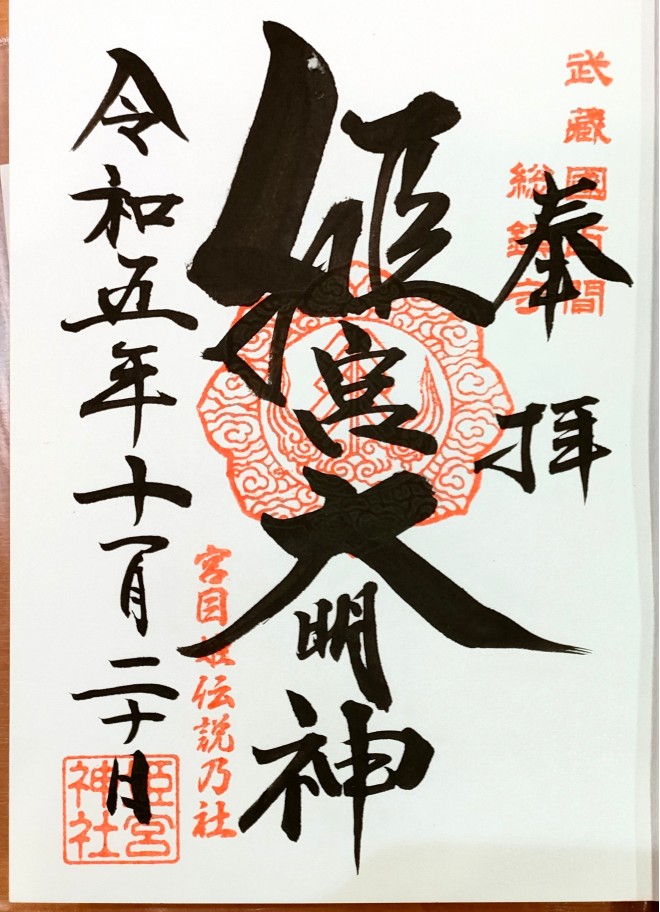 武藏國百間
総鎮守
奉拝
姫宮大明神
宮目姫伝説乃社
令和五年十一月二十日
姫宮
神社